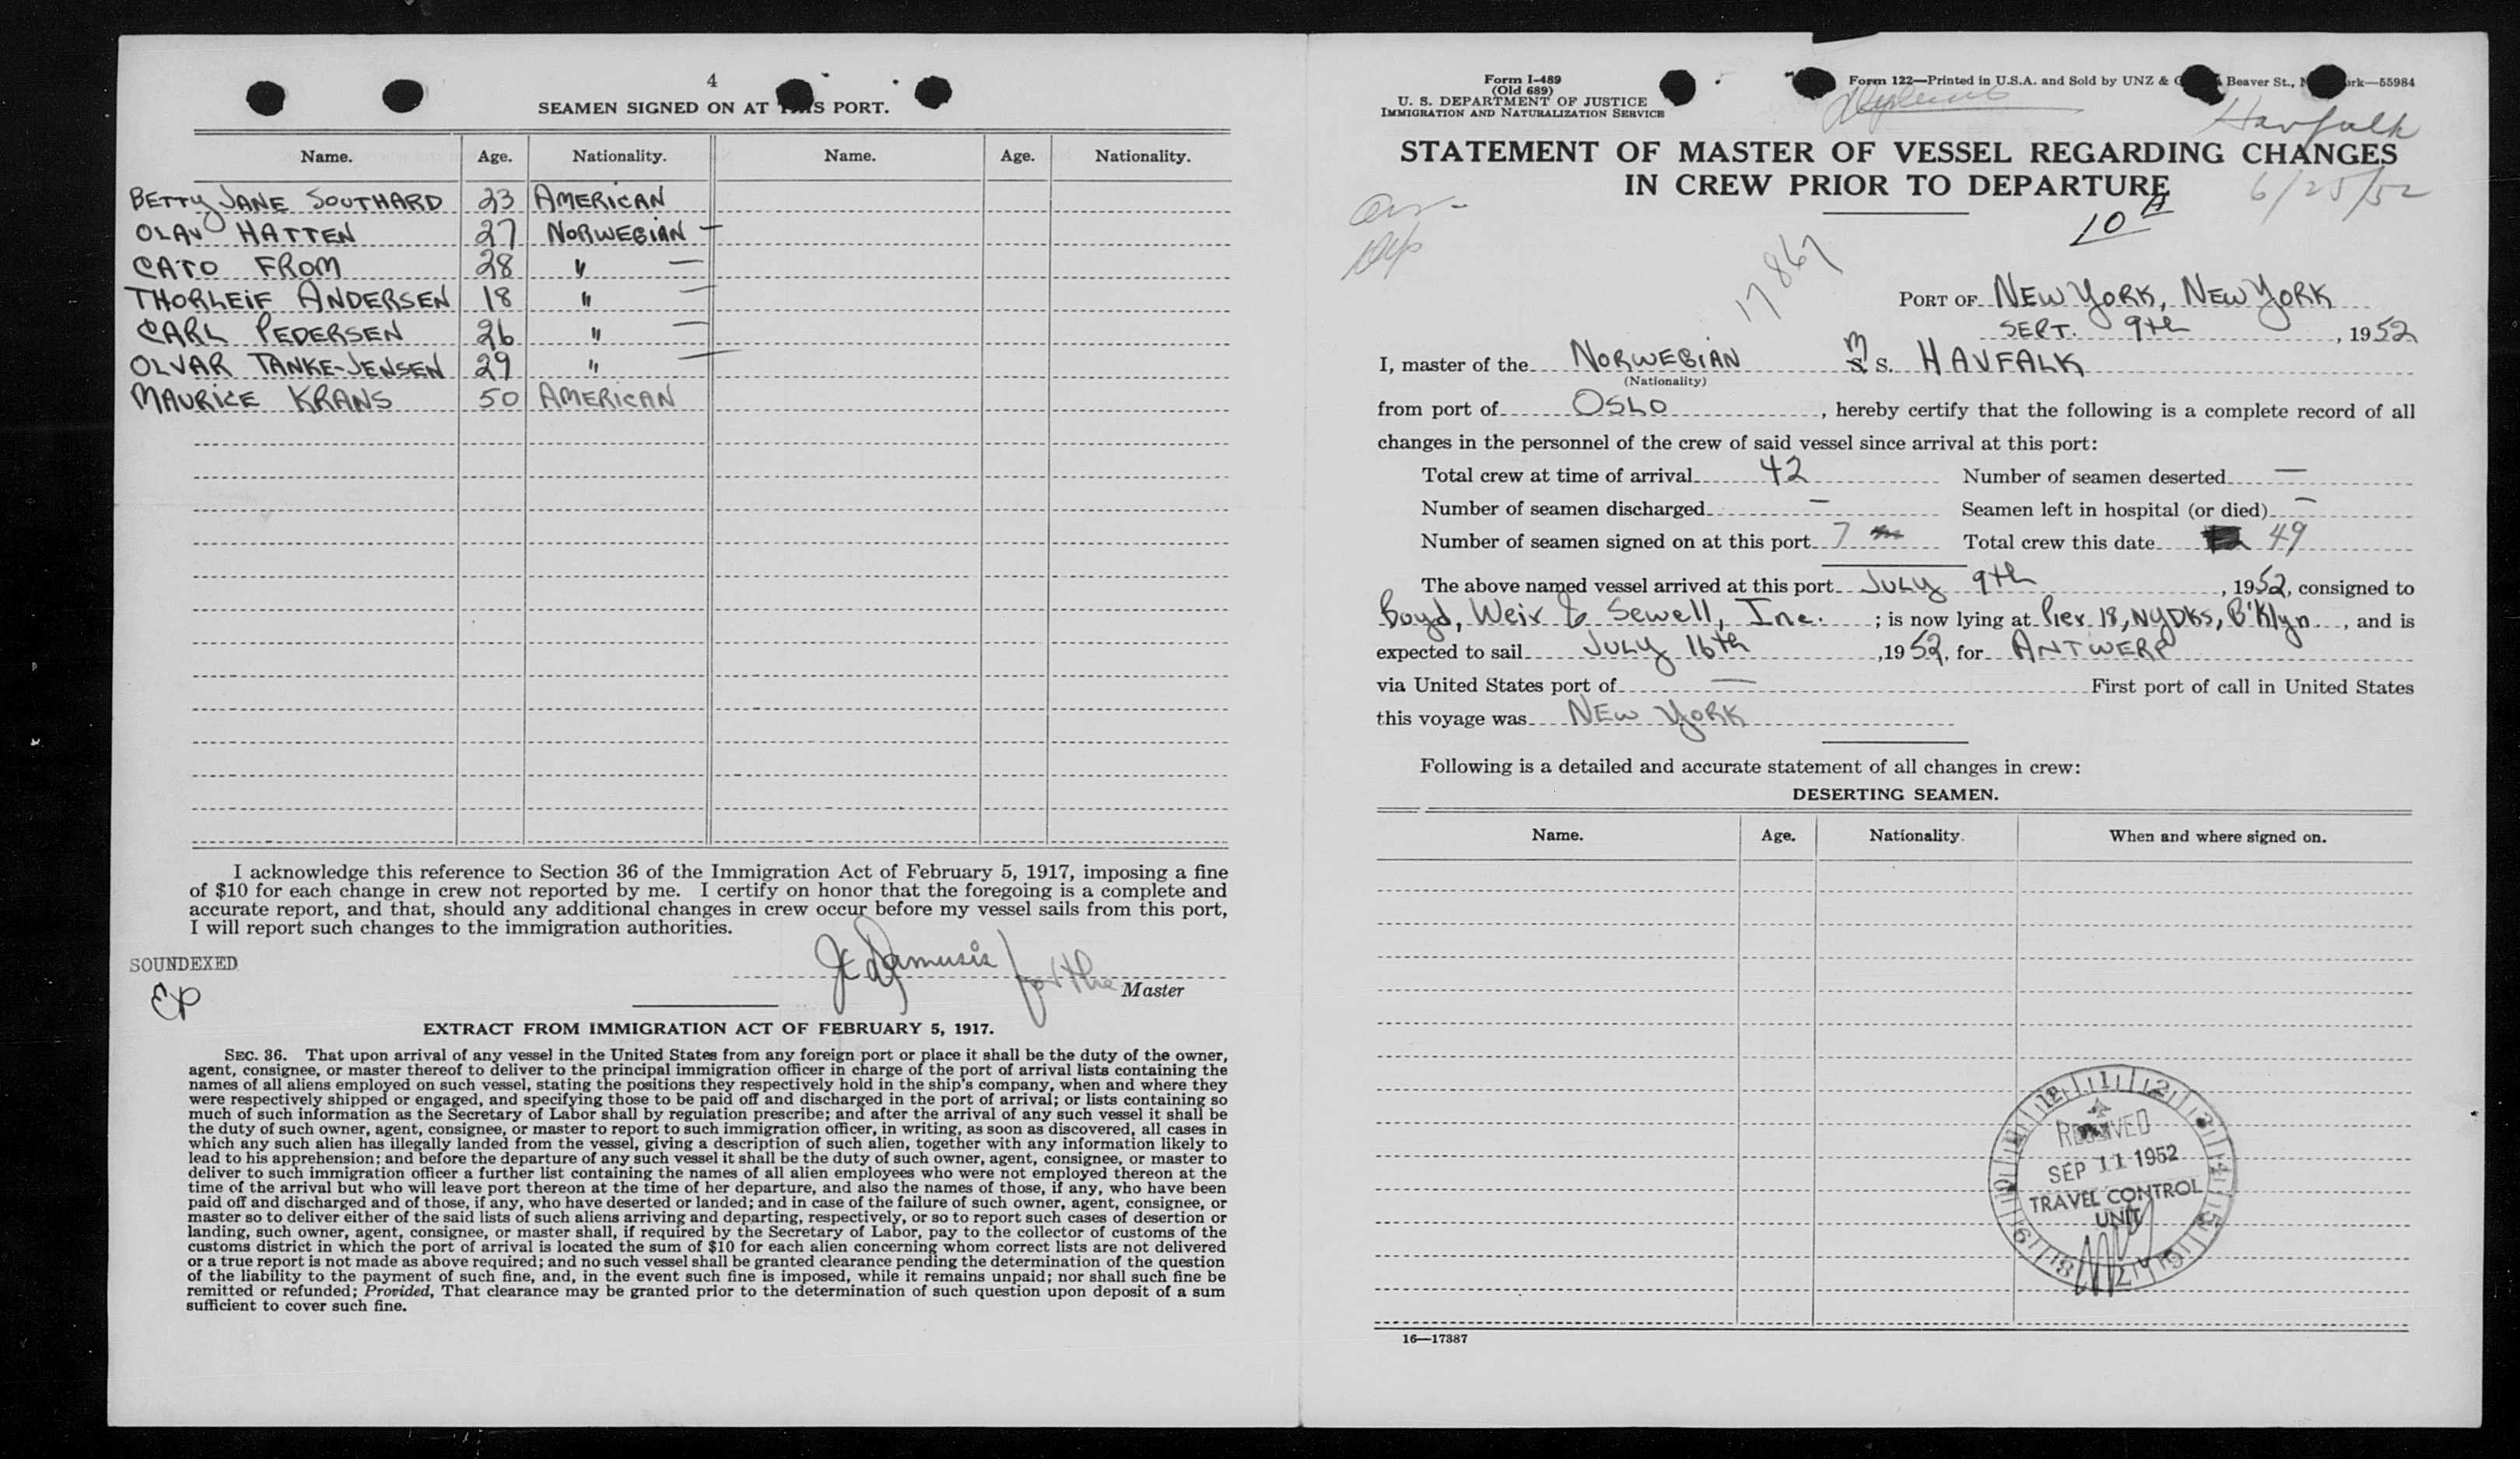 4
SEAMEN SIGNED ON AT THIS PORT.
Name. Age. Nationality. Name. Age. Nationality.
BETTY JANE SOUTHARD 23 AMERICAN
OLAV HATTEN 27 NORWEGIAN —
CATO FROM 28 " —
THORLEIF ANDERSEN 18 " —
CARL PEDERSEN 26 " —
OLVAR TANKE-JENSEN 29 " —
MAURICE KRANS 50 AMERICAN
I acknowledge this reference to Section 36 of the Immigration Act of February 5, 1917, imposing a fine
of $10 for each change in crew not reported by me. I certify on honor that the foregoing is a complete and
accurate report, and that, should any additional changes in crew occur before my vessel sails from this port,
I will report such changes to the immigration authorities.
SOUNDEXED
for the Master
EP
EXTRACT FROM IMMIGRATION ACT OF FEBRUARY 5, 1917.
SEC. 36. That upon arrival of any vessel in the United States from any foreign port or place it shall be the duty of the owner,
agent, consignee, or master thereof to deliver to the principal immigration officer in charge of the port of arrival lists containing the
names of all aliens employed on such vessel, stating the positions they respectively hold in the ship's company, when and where they
were respectively shipped or engaged, and specifying those to be paid off and discharged in the port of arrival; or lists containing so
much of such information as the Secretary of Labor shall by regulation prescribe; and after the arrival of any such vessel it shall be
the duty of such owner, agent, consignee, or master to report to such immigration officer, in writing, as soon as discovered, all cases in
which any such alien has illegally landed from the vessel, giving a description of such alien, together with any information likely to
lead to his apprehension; and before the departure of any such vessel it shall be the duty of such owner, agent, consignee, or master to
deliver to such immigration officer a further list containing the names of all alien employees who were not employed thereon at the
time of the arrival but who will leave port thereon at the time of her departure, and also the names of those, if any, who have been
paid off and discharged and of those, if any, who have deserted or landed; and in case of the failure of such owner, agent, consignee, or
master so to deliver either of the said lists of such aliens arriving and departing, respectively, or so to report such cases of desertion or
landing, such owner, agent, consignee, or master shall, if required by the Secretary of Labor, pay to the collector of customs of the
customs district in which the port of arrival is located the sum of $10 for each alien concerning whom correct lists are not delivered
or a true report is not made as above required; and no such vessel shall be granted clearance pending the determination of the question
of the liability to the payment of such fine, and, in the event such fine is imposed, while it remains unpaid; nor shall such fine be
remitted or refunded; Provided, That clearance may be granted prior to the determination of such question upon deposit of a sum
sufficient to cover such fine.
Form I-489
(Old 689)
U. S. DEPARTMENT OF JUSTICE
IMMIGRATION AND NATURALIZATION SERVICE
Form 122—Printed in U.S.A. and Sold by UNZ & Beaver St., —55984
Havfalk
STATEMENT OF MASTER OF VESSEL REGARDING CHANGES
IN CREW PRIOR TO DEPARTURE
6/25/52
10 A
17867
PORT OF NEW YORK, NEW YORK
SEPT. 9th, 1952
I, master of the NORWEGIAN M S. HAVFALK
(Nationality)
from port of OSLO, hereby certify that the following is a complete record of all
changes in the personnel of the crew of said vessel since arrival at this port:
Total crew at time of arrival 42 Number of seamen deserted —
Number of seamen discharged — Seamen left in hospital (or died) —
Number of seamen signed on at this port 7 Total crew this date 49
The above named vessel arrived at this port JULY 9th, 1952, consigned to
Boyd, Weir & Sewell, Inc.; is now lying at Pier 18, NYDKS, B'Klyn, and is
expected to sail JULY 16th, 1952, for ANTWERP
via United States port of — First port of call in United States
this voyage was NEW YORK
Following is a detailed and accurate statement of all changes in crew:
DESERTING SEAMEN.
Name. Age. Nationality. When and where signed on.
RECEIVED
SEP 11 1952
TRAVEL CONTROL
UNIT
16—17387